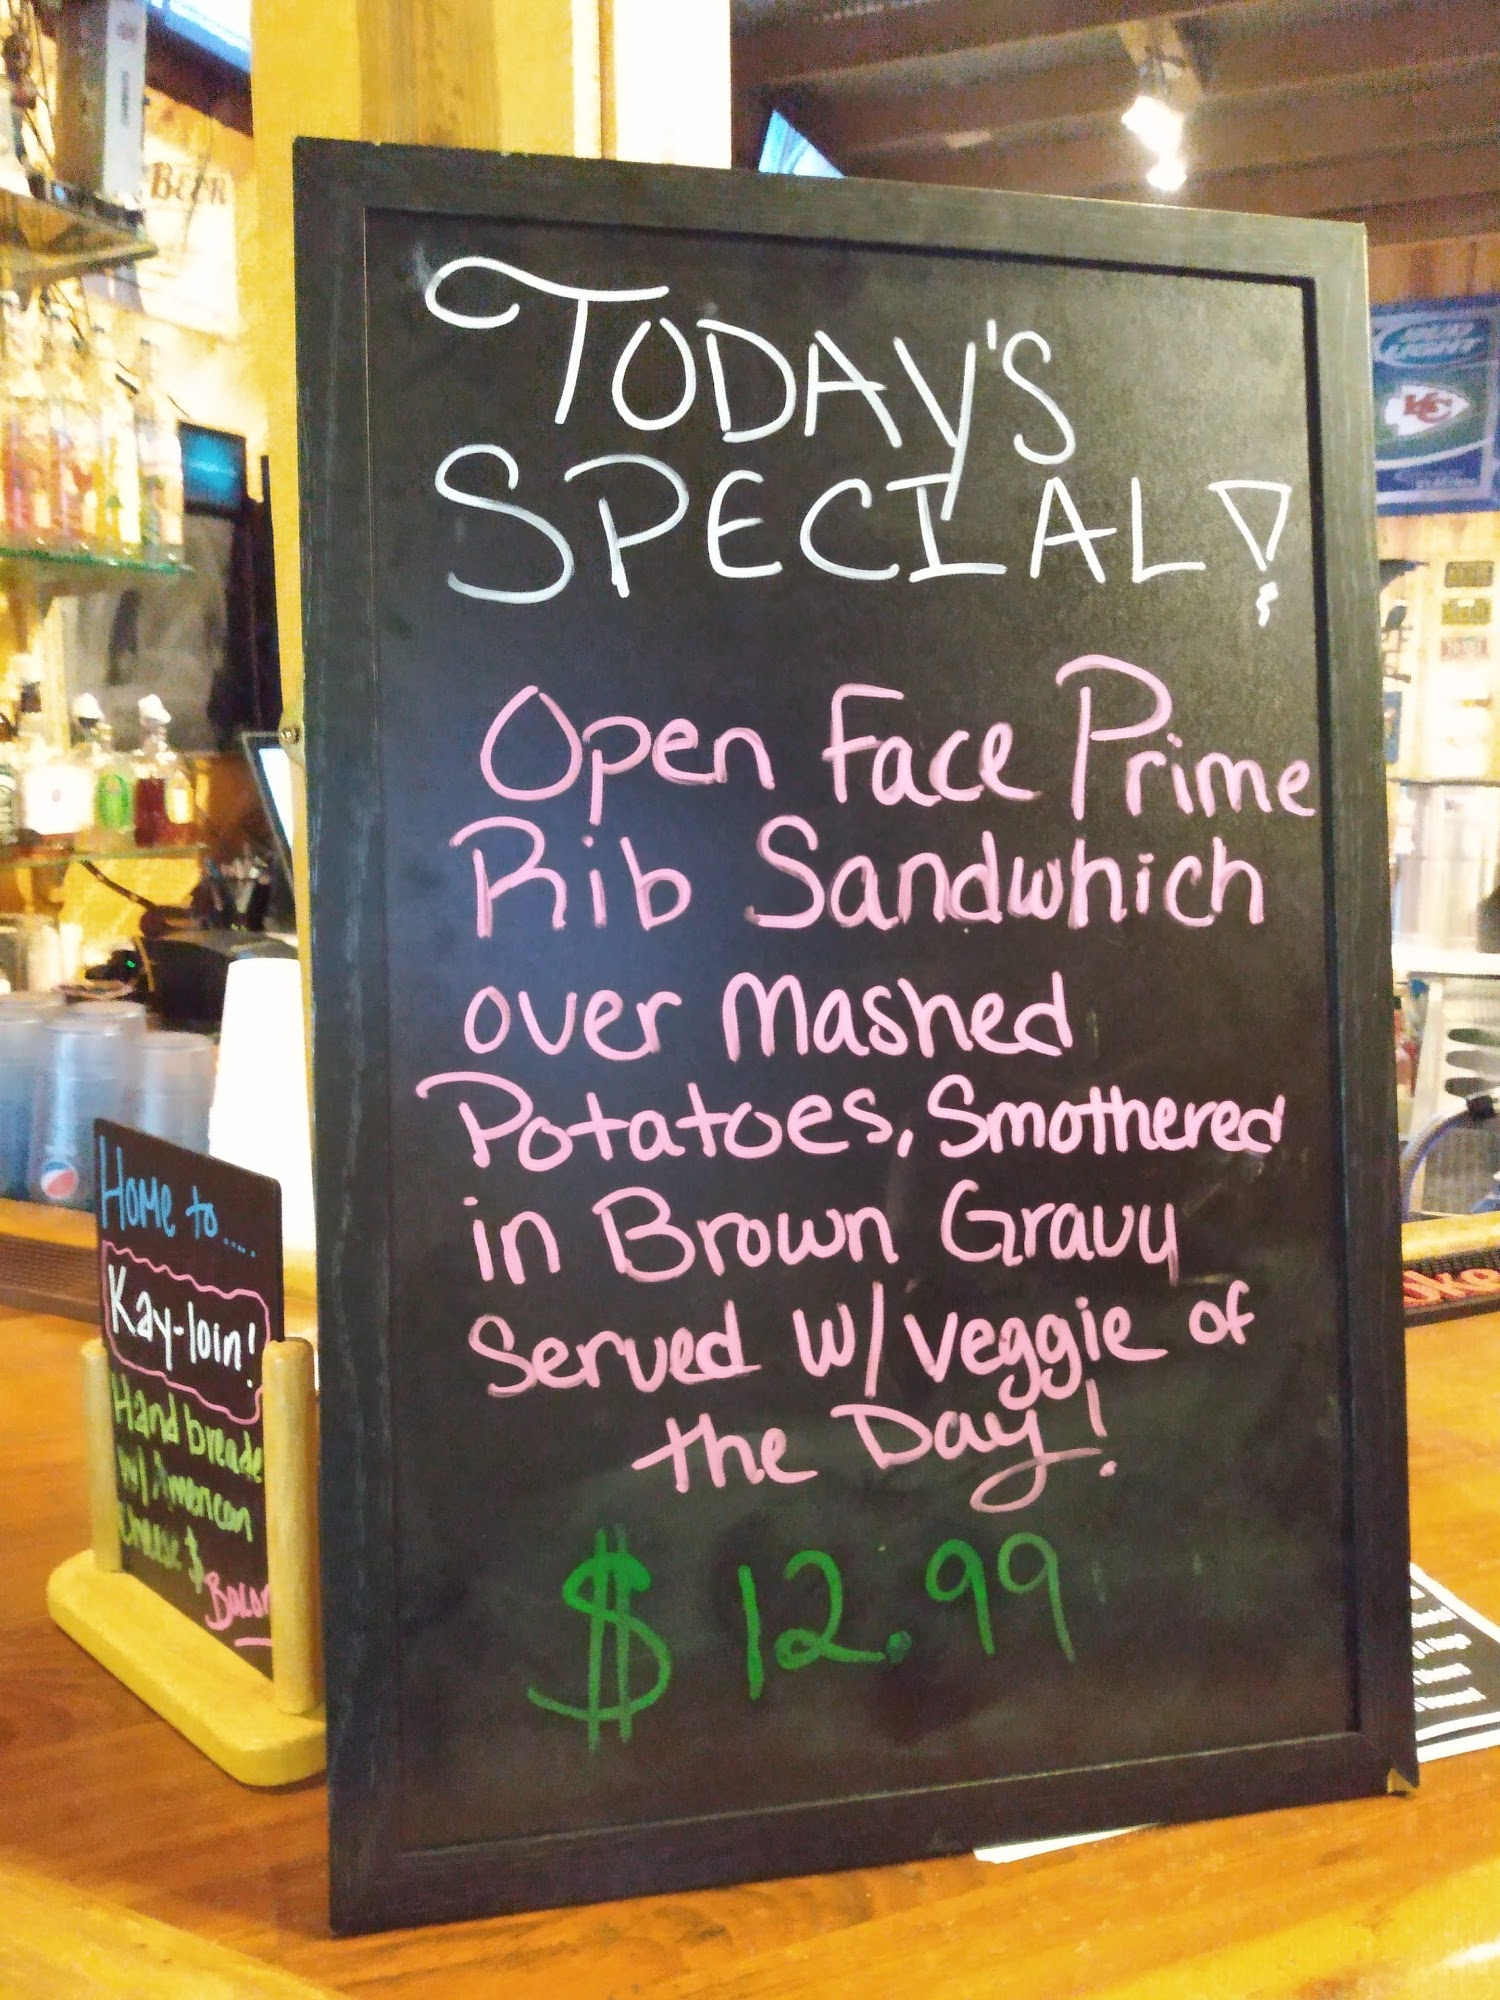 TODAY'S
SPECIAL!
Open Face Prime
Rib Sandwhich
over Mashed
Potatoes, Smothered
in Brown Gravy
Served w/ veggie of
the Day!
$12.99
Home to.....
Kay-loin!
Hand breade
w/ American
Cheese $
Bacon
BEER
BUD
LIGHT
KC